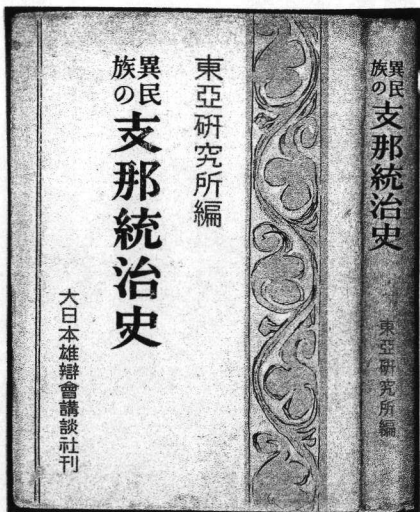 東亞硏究所編
異民族の支那統治史
大日本雄辯會講談社刊
異民族の支那統治史
東亞硏究所編